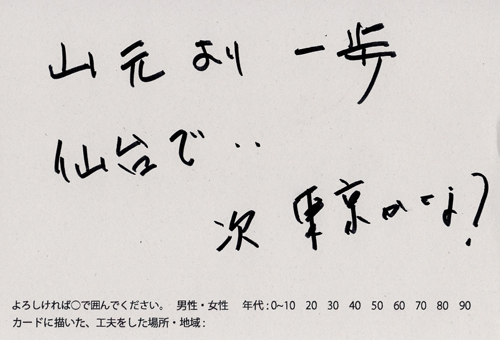 山元より 一歩
仙台で‥
次 東京かな?
よろしければ○で囲んでください。 男性・女性 年代:0~10 20 30 40 50 60 70 80 90
カードに描いた、工夫をした場所・地域: